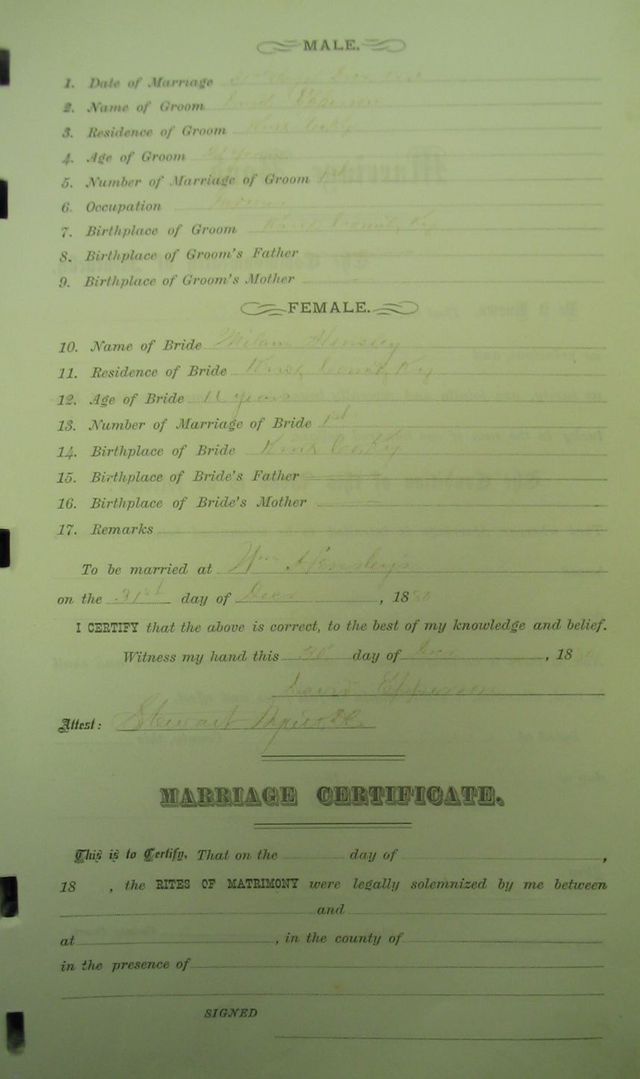 MALE.
1. Date of Marriage
2. Name of Groom Epperson
3. Residence of Groom Knox Co Ky
4. Age of Groom years
5. Number of Marriage of Groom 1st
6. Occupation
7. Birthplace of Groom Knox County, Ky
8. Birthplace of Groom's Father
9. Birthplace of Groom's Mother
FEMALE.
10. Name of Bride Hensley
11. Residence of Bride Knox County Ky
12. Age of Bride years
13. Number of Marriage of Bride 1st
14. Birthplace of Bride Knox Co Ky
15. Birthplace of Bride's Father
16. Birthplace of Bride's Mother
17. Remarks
To be married at Wm Hensley's
on the 31st day of Decr , 18
I CERTIFY that the above is correct, to the best of my knowledge and belief.
Witness my hand this 30 day of Decr , 18
Epperson
Attest: Stewart
MARRIAGE CERTIFICATE.
This is to Certify, That on the day of ,
18 , the RITES OF MATRIMONY were legally solemnized by me between
and
at , in the county of
in the presence of
SIGNED